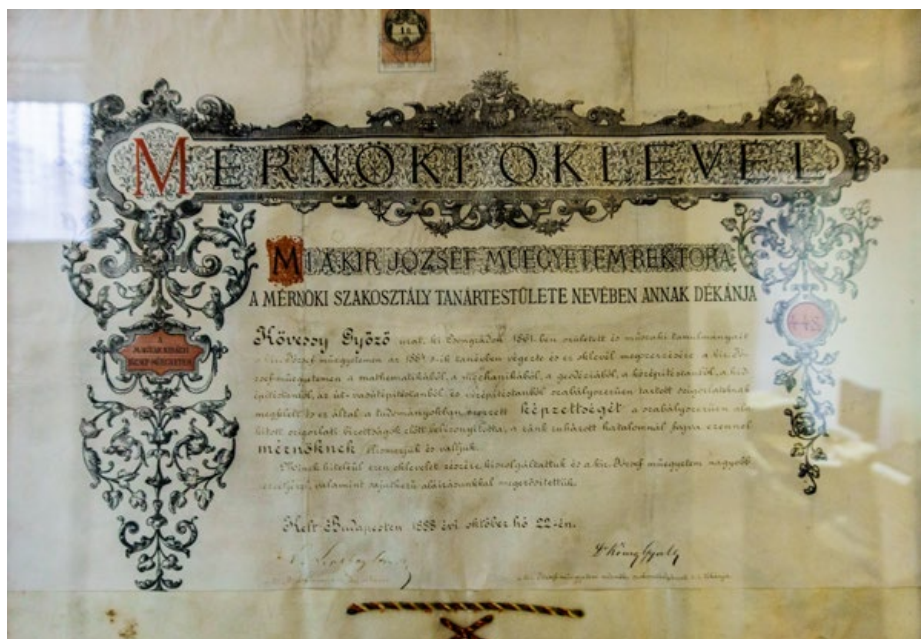 MÉRNÖKI OKLEVÉL
MI A KIR. JÓZSEF MŰEGYETEM REKTORA,
A MÉRNÖKI SZAKOSZTÁLY TANÁRTESTÜLETE NEVÉBEN ANNAK DÉKÁNJA
A
MAGYAR KIRÁLYI
JÓZSEF MŰEGYETEM
244
Kövessy Győző urat, ki Csongrádon 1861-ben született és műszaki tanulmányait
a kir. József műegyetemen az 1884-ik tanévben végezte és ez oklevél megszerzésére a kir. Jó-
zsef műegyetemen a mathematikából, a mechanikából, a geodéziából, a középítéstanból, a híd-
építéstanból, az út- vasútépítéstanból és vízépítéstanból szabályszerűen tartott szigorlatoknak
megfelelt és ez által a tudományokban szerzett képzettségét a szabályszerűen ala-
kított szigorlati bizottságok előtt bebizonyította, a ránk ruházott hatalomnál fogva ezennel
mérnöknek elismerjük és valljuk.
Minek hiteléül ezen oklevelet részére kiszolgáltattuk és a kir. József műegyetem nagyobb
pecsétjével, valamint sajátkezű aláírásunkkal megerősítettük.
Kelt Budapesten 1888 évi október hó 22-én.
Dr König Gyula
a kir. József műegyetem mérnöki szakosztályának e. i. dékánja